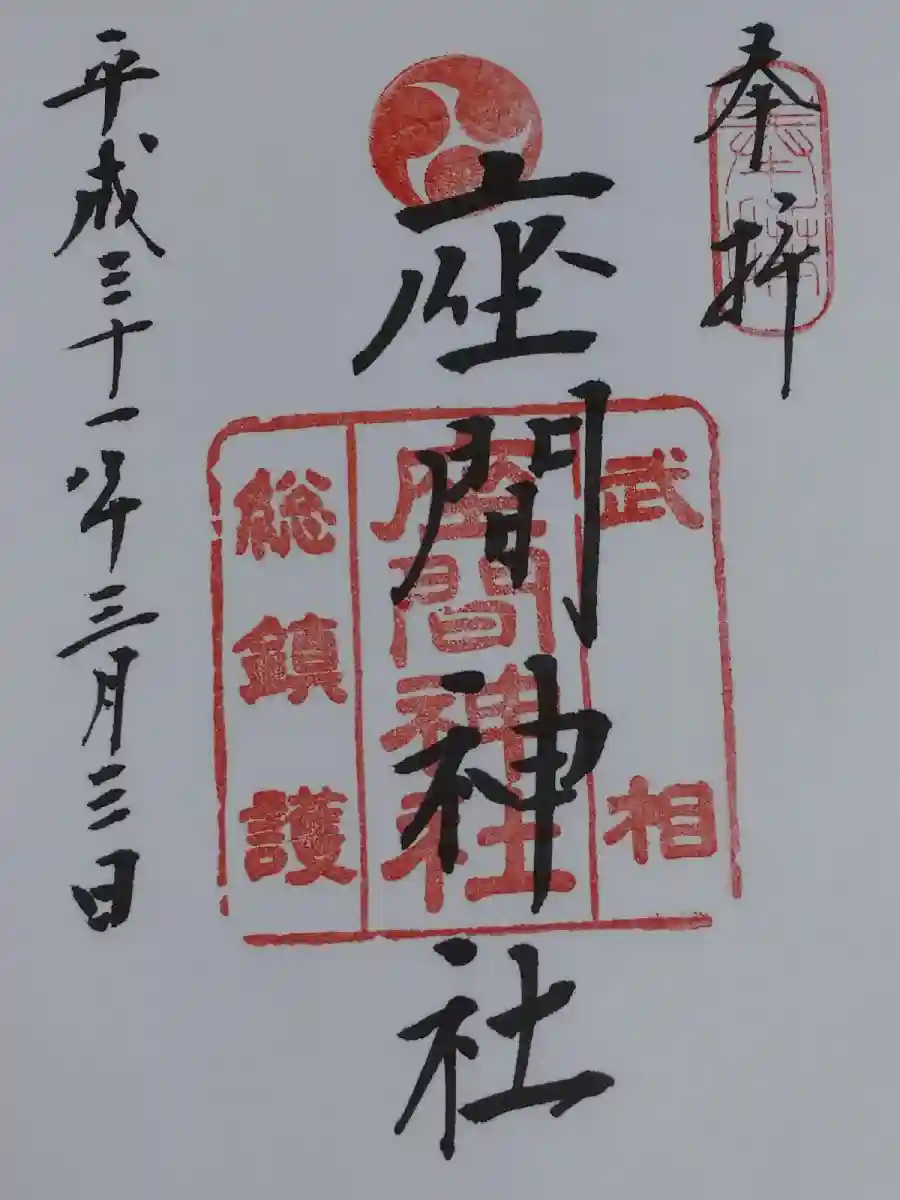 奉拝
奉拝
武相
座間神社
座間神社
総鎮護
平成三十一年三月三日